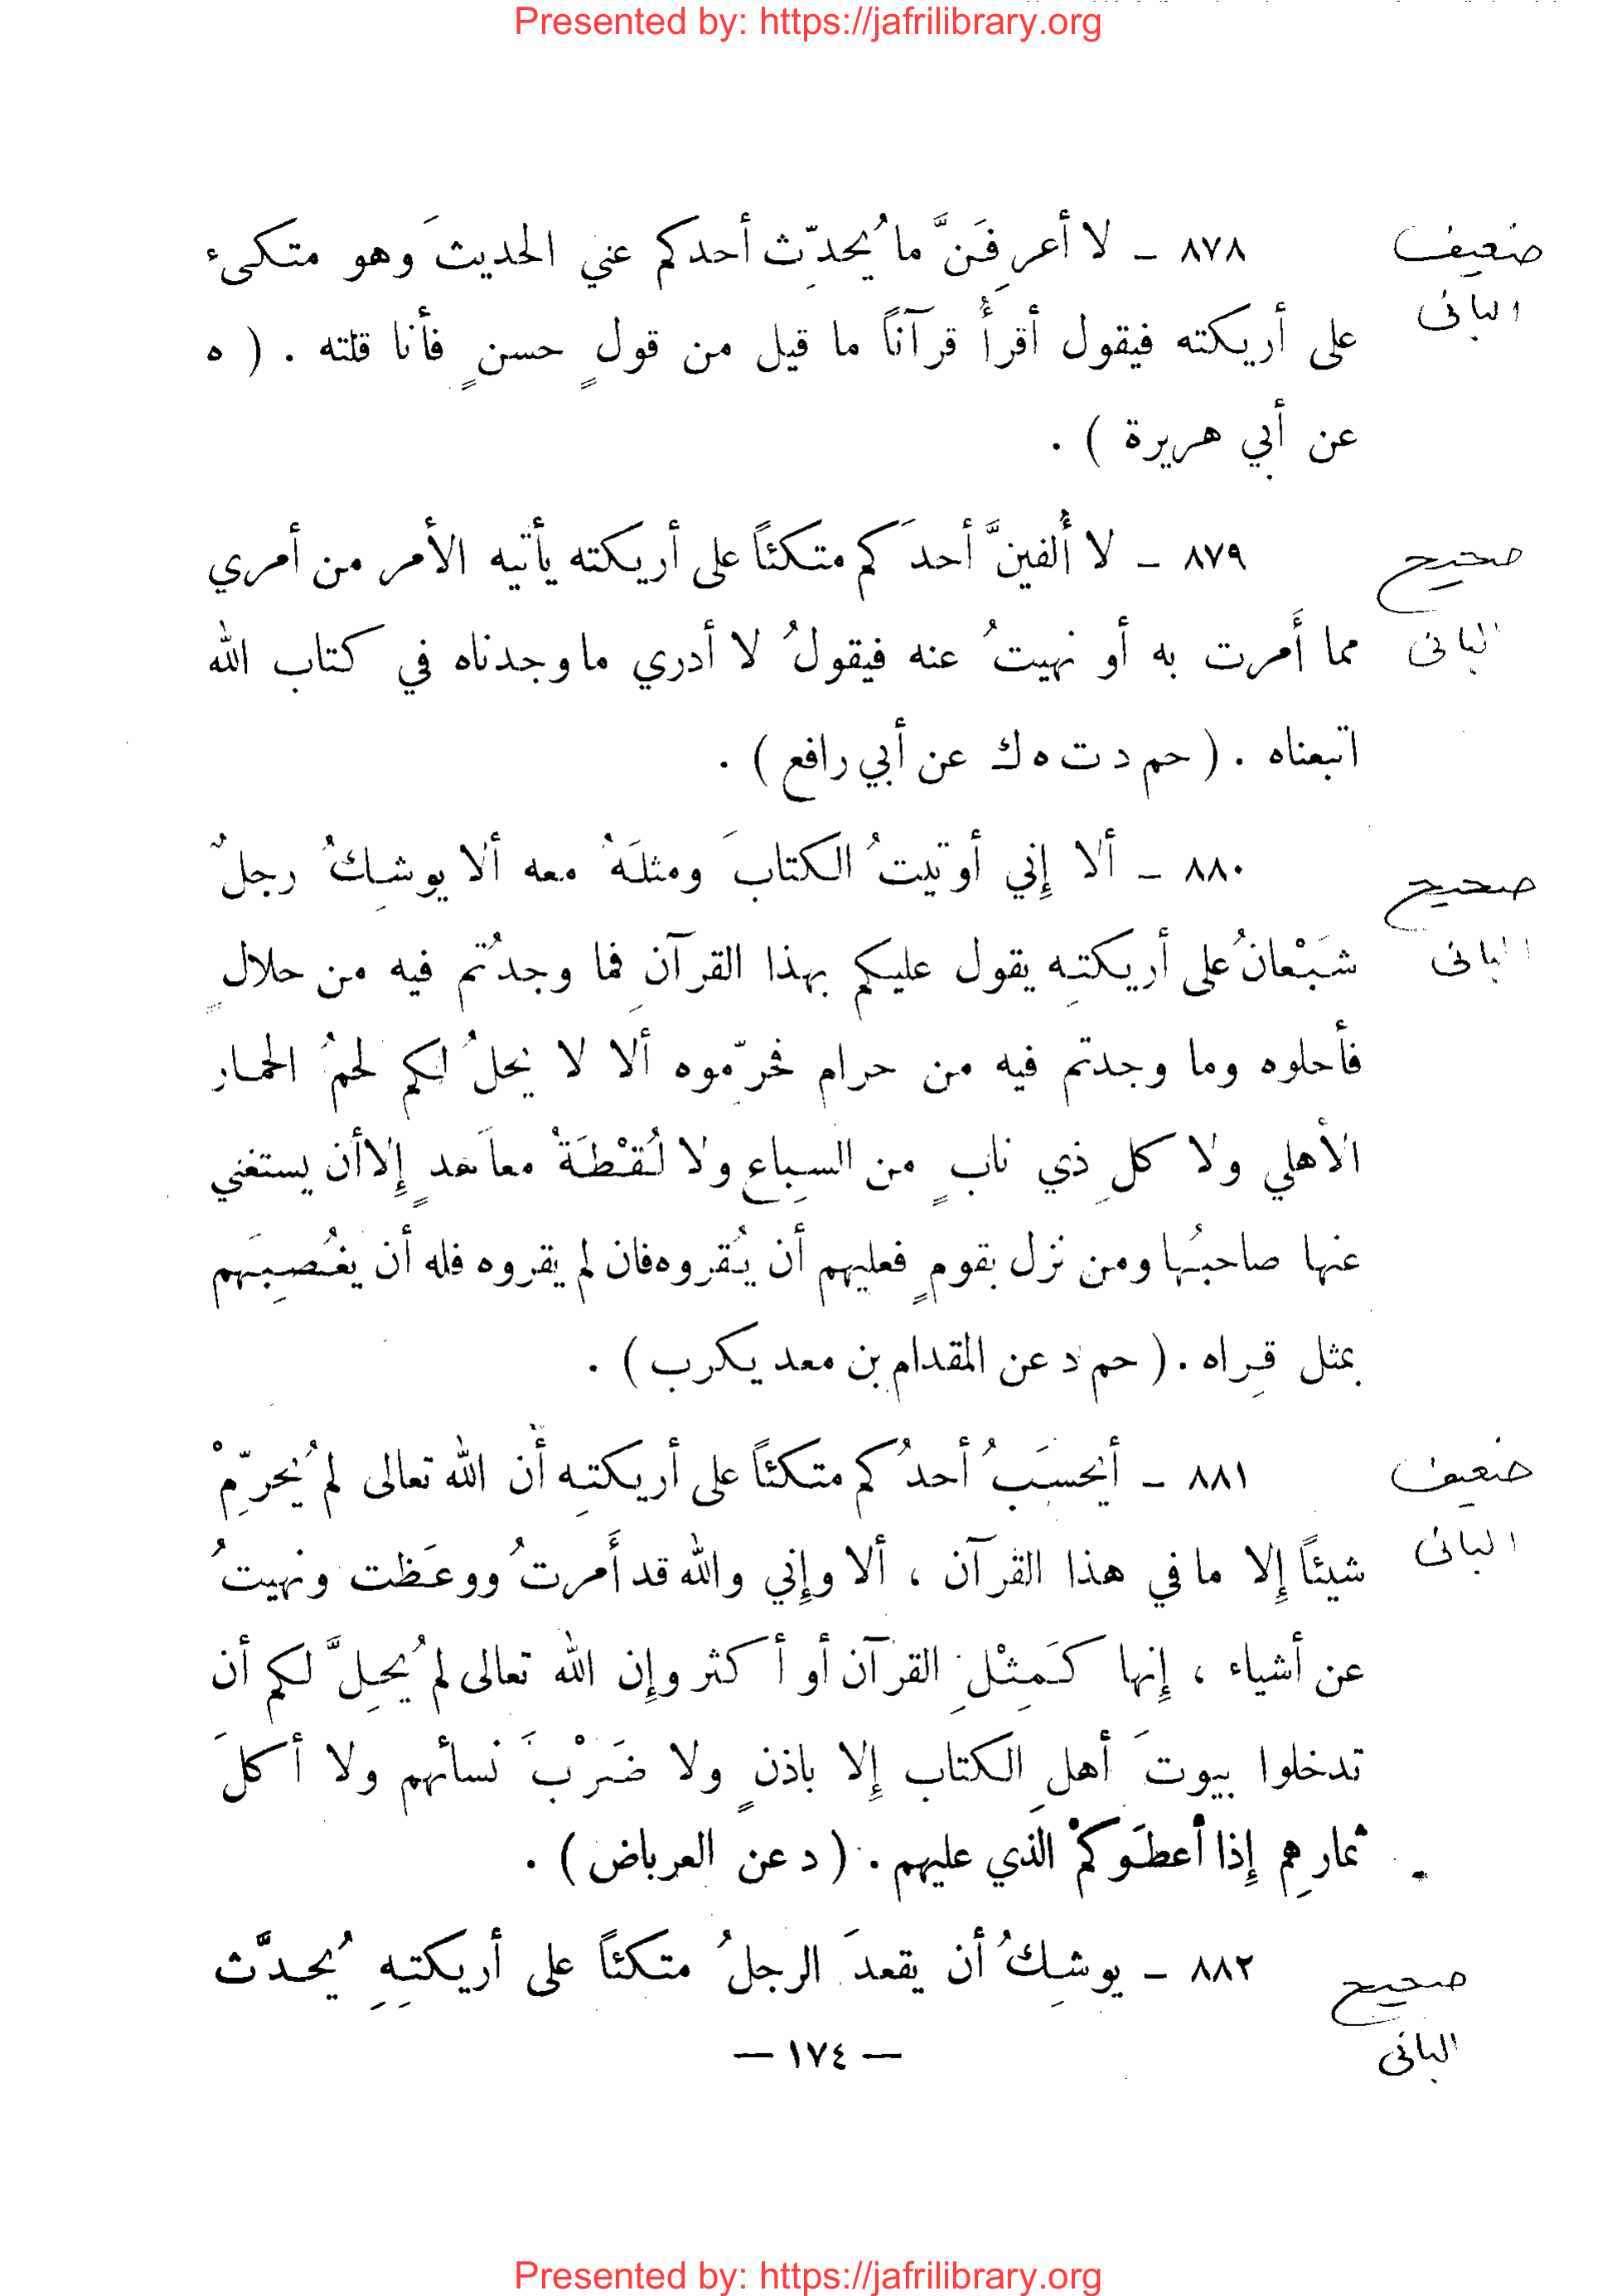 Presented by: https://jafrilibrary.org
ضعيف
البانى
٨٧٨ – لا أعرِفَنَّ ما يُحدِّث أحدكم عني الحديثَ وهو متكىء
على أريكته فيقول أقرأُ قرآناً ما قيل من قولٍ حسنٍ فأنا قلته . ( ه
عن أبي هريرة ) .
صحيح
البانى
٨٧٩ – لا أُلفينَّ أحدَكم متكئاً على أريكته يأتيه الأمر من أمري
مما أَمرت به أو نهيتُ عنه فيقولُ لا أدري ما وجدناه في كتاب الله
اتبعناه . ( حم د ت ه ك عن أبي رافع ) .
صحيح
البانى
٨٨٠ – ألا إِني أوتيتُ الكتابَ ومثلَهُ معه ألا يوشِكُ رجلٌ
شَبْعانُ على أريكتِه يقول عليكم بهذا القرآنِ فما وجدُتم فيه من حلالٍ
فأحلوه وما وجدتم فيه من حرام فحرِّموه ألا لا يحلُ لكم لحمُ الحمار
الأهلي ولا كلِ ذي نابٍ من السِباع ولا لُقْطَةُ معاَهدٍ إِلا أن يستغني
عنها صاحبُها ومن نزل بقومٍ فعليهم أن يُقروه فان لم يقروه فله أن يغُصِبَهم
بمثل قِراه . ( حم د عن المقدام بن معد يكرب ) .
ضعيف
البانى
٨٨١ – أيحسَبُ أحدُكم متكئاً على أريكتِه أَن الله تعالى لم يُحرِّمْ
شيئاً إِلا ما في هذا القرآن ، ألا وإِني والله قد أَمرتُ ووعَظت ونهيتُ
عن أشياء ، إِنها كَمِثْلِ القرآن أو أكثر وإِن الله تعالى لم يُحِلَّ لكم أن
تدخلوا بيوتَ أهلِ الكتاب إِلا باذنٍ ولا ضَرْبَ نسأئهم ولا أكلَ
ثمارِهم إِذا أعطَوكمْ الَذي عليهم . ( د عن العرباض ) .
صحيح
البانى
٨٨٢ – يوشِكُ أن يقعدَ الرجلُ متكئاً على أريكتِهِ يُحدَّث
— ١٧٤ —
Presented by: https://jafrilibrary.org